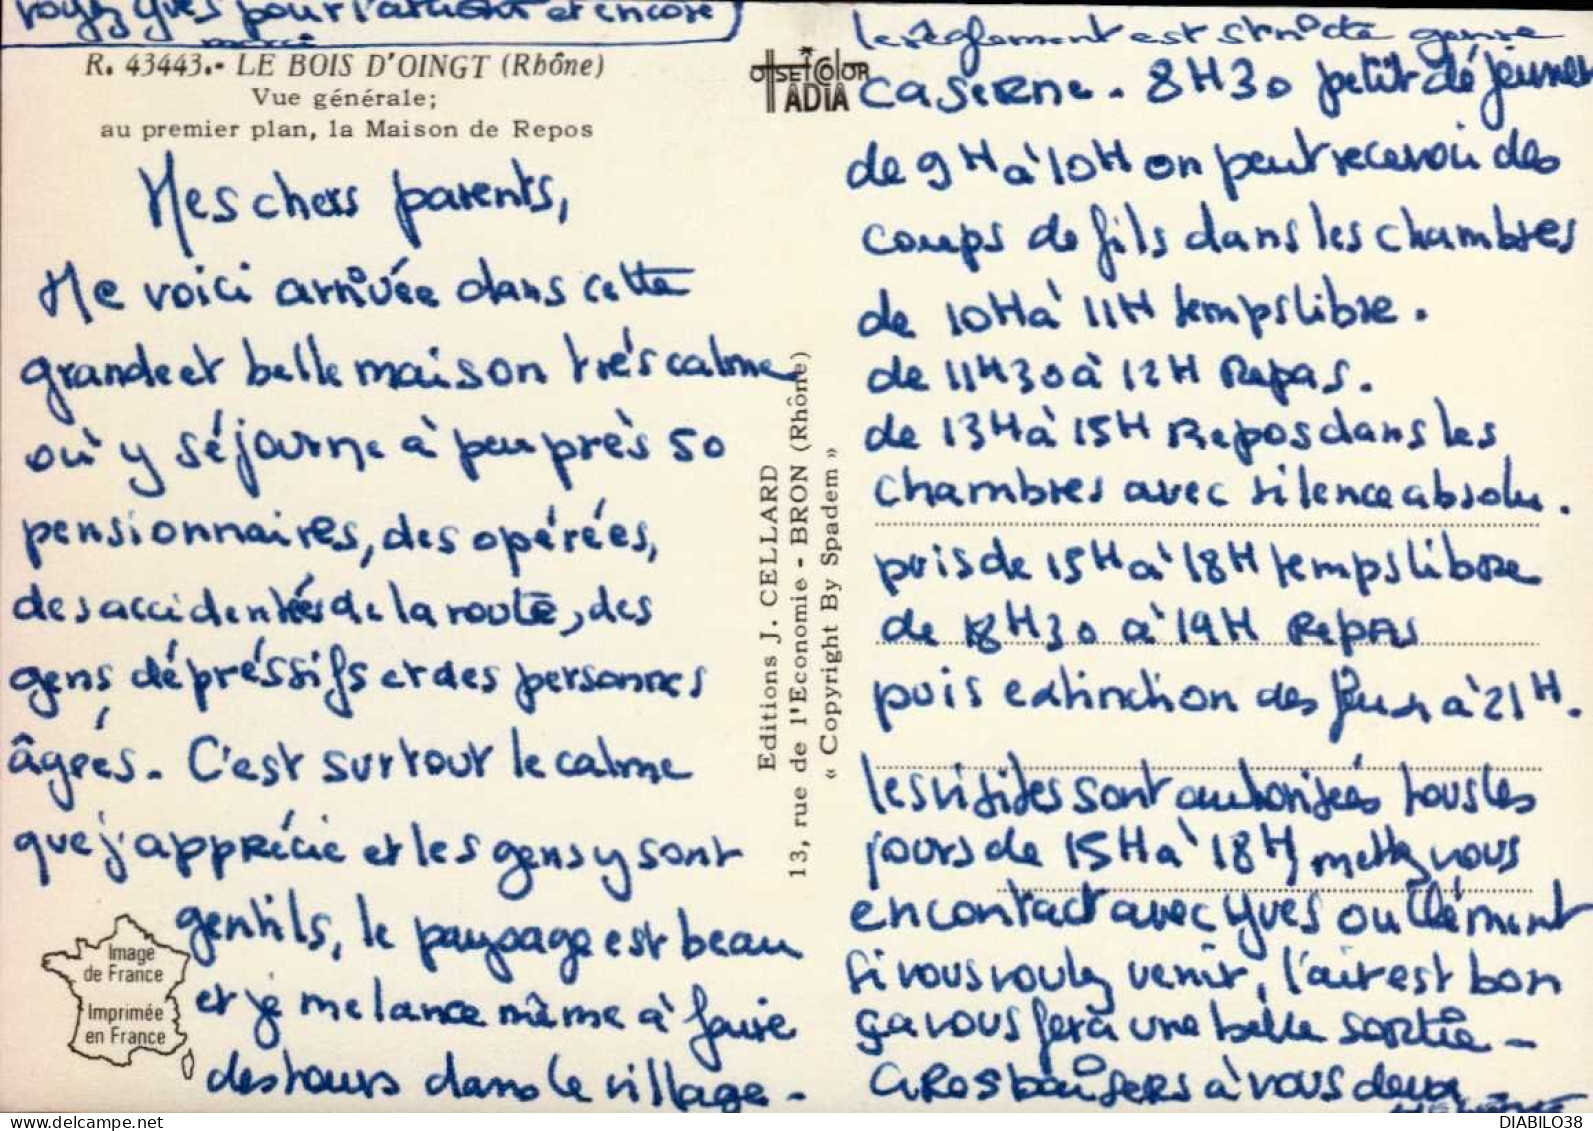 voyez Yves pour l'argent et encore
merci
R. 43443.- LE BOIS D'OINGT (Rhône)
Vue générale;
au premier plan, la Maison de Repos
Mes chers parents,
Me voici arrivée dans cette
grande et belle maison très calme
où y séjourne à peu près 50
pensionnaires, des opérées,
des accidentées de la route, des
gens dépréssifs et des personnes
âgées. C'est surtout le calme
que j'apprécie et les gens y sont
gentils, le paysage est beau
et je me lance même à faire
des tours dans le village.
Image
de France
Imprimée
en France
Editions J. CELLARD
13, rue de l'Economie - BRON (Rhône)
« Copyright By Spadem »
OFFSET COLOR
ADIA
le règlement est stricte genre
caserne. 8H30 petit déjeuner
de 9H à 10H on peut recevoir des
coups de fils dans les chambres
de 10H à 11H temps libre.
de 11H30 à 12H Repas.
de 13H à 15H Repos dans les
chambres avec silence absolu.
puis de 15H à 18H temps libre
de 18H30 à 19H Repas
puis extinction des feux à 21H.
les visites sont autorisées tous les
jours de 15H à 18H, mettez vous
en contact avec Yves ou Clément
si vous voulez venir, l'air est bon
ça vous fera une belle sortie -
Gros baisers à vous deux
DIABILO38
delcampe.net